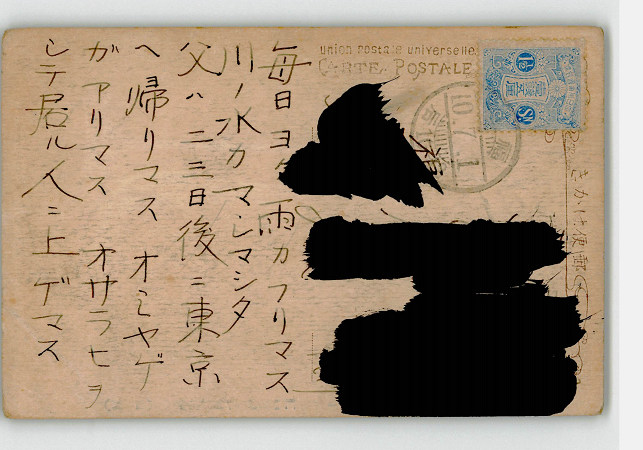 毎日ヨク雨カフリマス
川ノ水カマシマシタ
父ハ二三日後ニ東京
へ帰リマス オミヤゲ
ガアリマス オサラヒヲ
シテ居ル人ニ上ゲマス
union postale universelle
CARTE POSTALE
きかは便郵
10.7.1